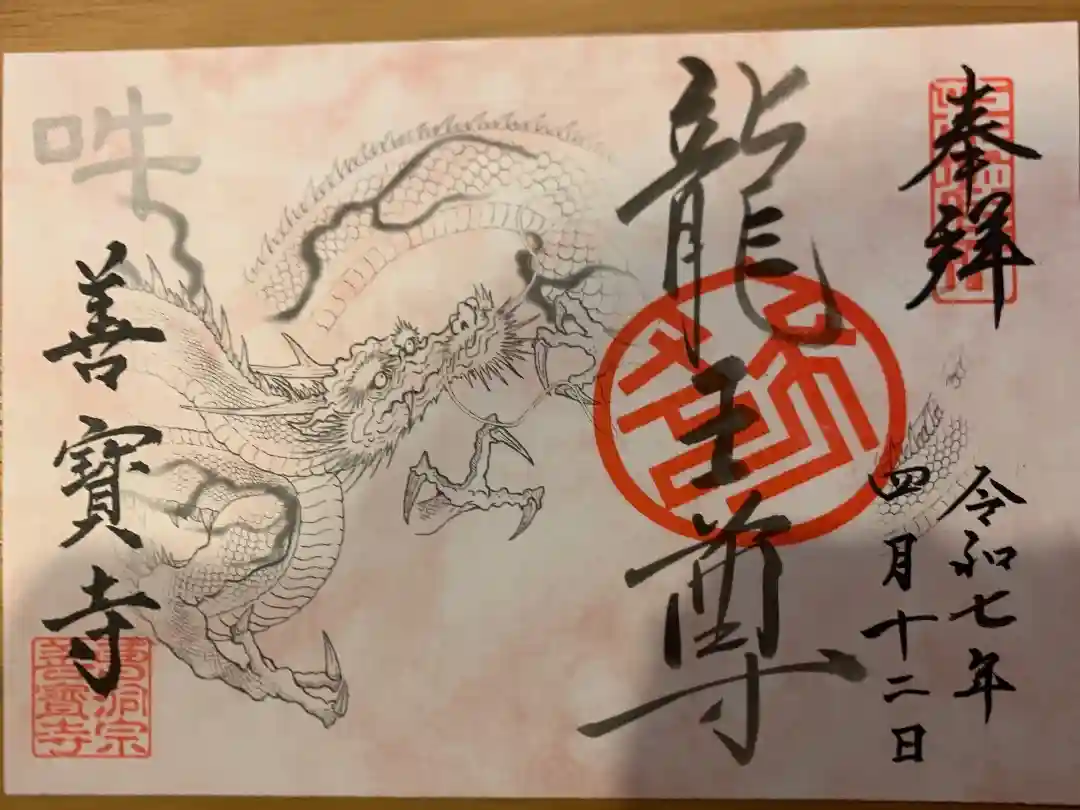 奉拝
龍王尊
令和七年
四月十二日
吽
善寶寺
曹洞宗
善寶寺